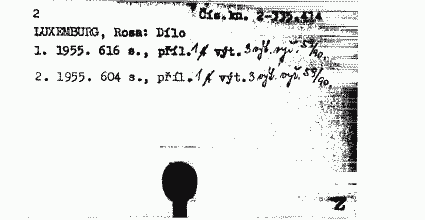 2 Čís.kn. 2-335.414
LUXEMBURG, Rosa: Dílo
1. 1955. 616 s., příl. 1 výt. 3 výt. vyř. 59/90.
2. 1955. 604 s., příl. 1 výt. 3 výt. vyř. 59/90.
Z